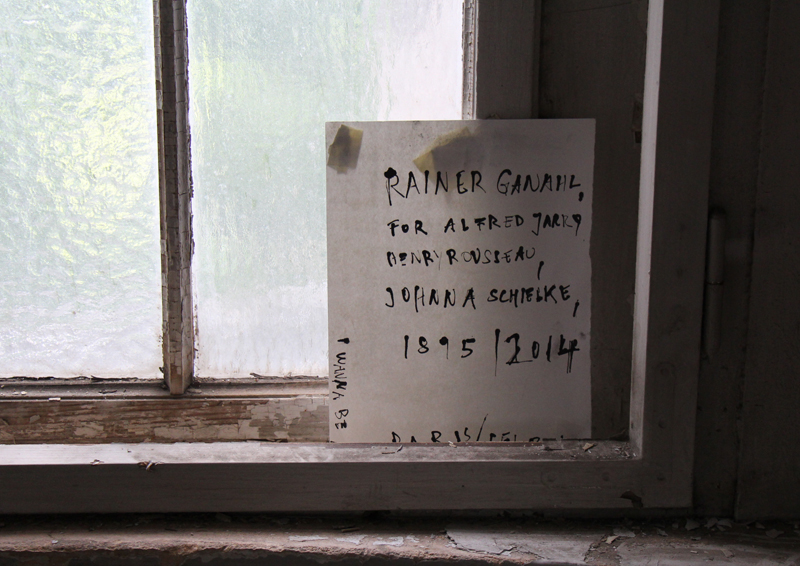 RAINER GANAHL,
FOR ALFRED JARRY
HENRY ROUSSEAU,
JOHNNA SCHIELKE,
1895/2014
I WANNA BE